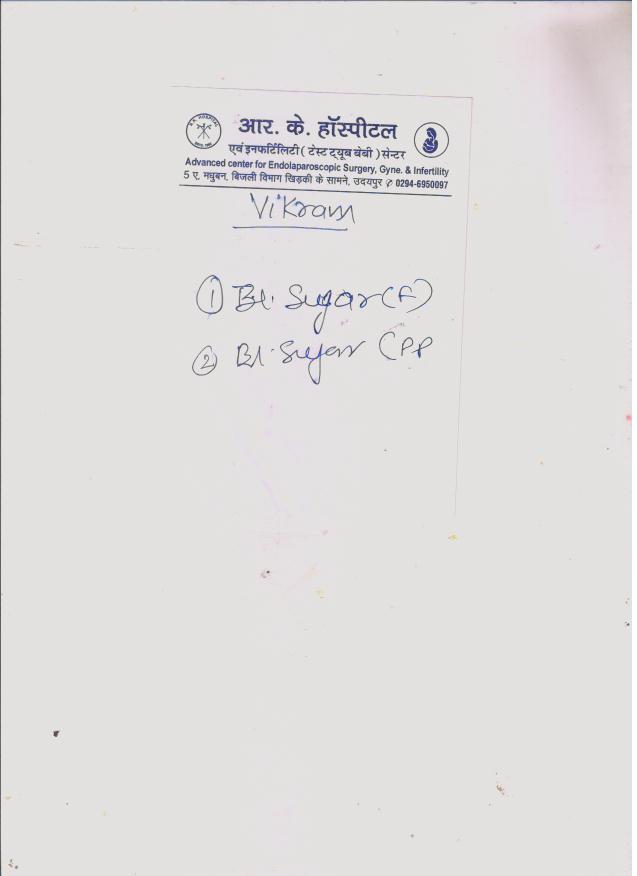 आर. के. हॉस्पीटल
एवं इनफर्टिलिटी ( टेस्ट ट्यूब बेबी ) सेन्टर
Advanced center for Endolaparoscopic Surgery, Gyne. & Infertility
5 ए, मधुबन, बिजली विभाग खिड़की के सामने, उदयपुर ✆ 0294-6950097
Vikram
① Bl. Sugar (F)
② Bl. Sugar (PP